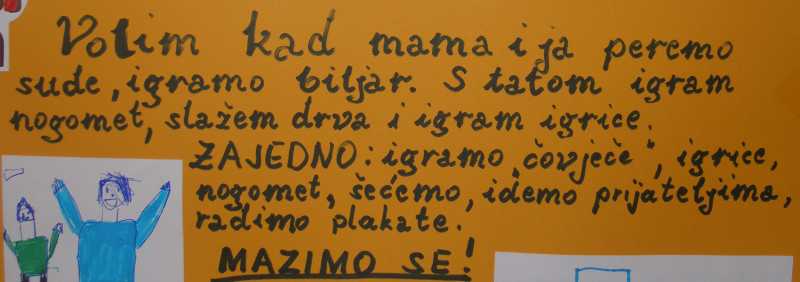 Volim kad mama i ja peremo
suđe, igramo biljar. S tatom igram
nogomet, slažem drva i igram igrice.
ZAJEDNO: igramo „čovječe“, igrice,
nogomet, šećemo, idemo prijateljima,
radimo plakate.
MAZIMO SE!